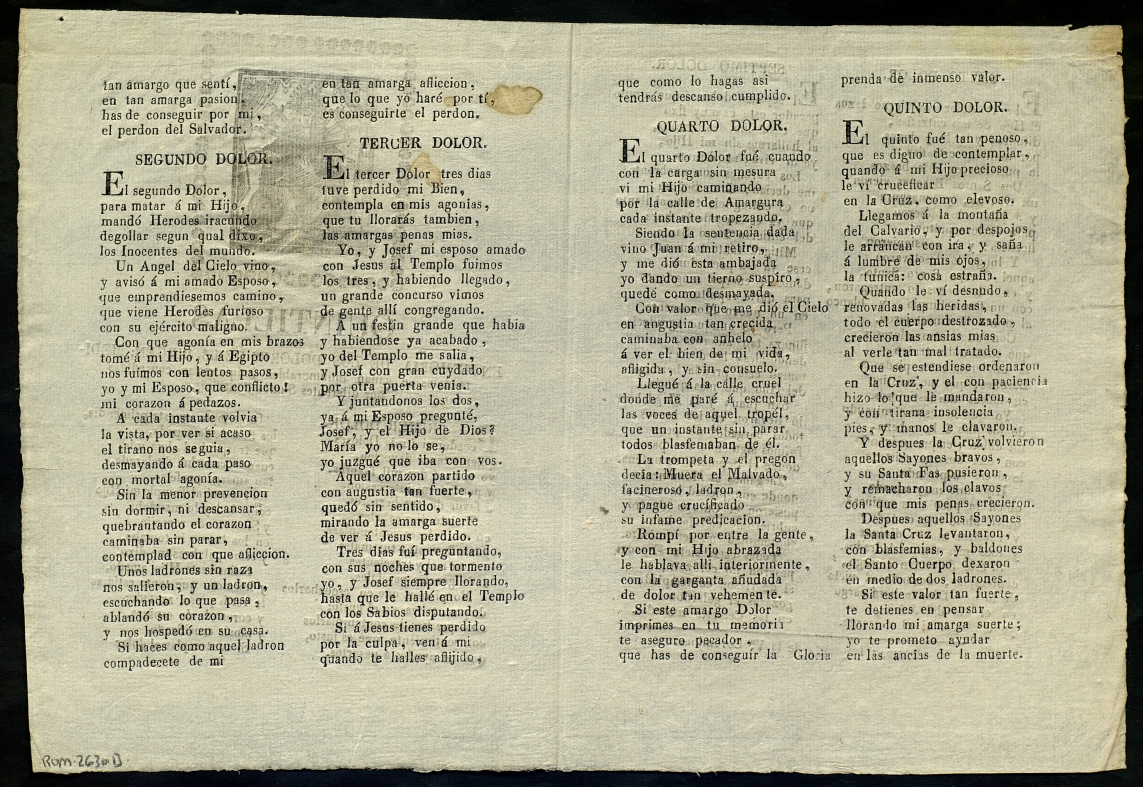 tan amargo que sentí,
en tan amarga pasion,
has de conseguir por mí,
el perdon del Salvador.
SEGUNDO DOLOR.
El segundo Dolor,
para matar á mi Hijo,
mandó Herodes iracundo
degollar segun qual dixo,
los Inocentes del mundo.
Un Angel del Cielo vino,
y avisó á mi amado Esposo,
que emprendiesemos camino,
que viene Herodes furioso
con su ejército maligno.
Con que agonía en mis brazos
tomé á mi Hijo, y á Egipto
nos fuímos con lentos pasos,
yo y mi Esposo, que conflicto!
mi corazon á pedazos.
A cada instante volvia
la vista, por ver si acaso
el tirano nos seguia,
desmayando á cada paso
con mortal agonía.
Sin la menor prevencion
sin dormir, ni descansar,
quebrantando el corazon
caminaba sin parar,
contemplad con que afliccion.
Unos ladrones sin raza
nos salieron, y un ladron,
escuchando lo que pasa,
ablandó su corazon,
y nos hospedó en su casa.
Si haces como aquel ladron
compadecete de mi
en tan amarga afliccion,
que lo que yo haré por tí,
es conseguirte el perdon.
TERCER DOLOR.
El tercer Dolor tres dias
tuve perdido mi Bien,
contempla en mis agonias,
que tu llorarás tambien,
las amargas penas mias.
Yo, y Josef mi esposo amado
con Jesus al Templo fuimos
los tres, y habiendo llegado,
un grande concurso vimos
de gente allí congregando.
A un festin grande que habia
y habiendose ya acabado,
yo del Templo me salia,
y Josef con gran cuydado
por otra puerta venia.
Y juntandonos los dos,
ya á mi Esposo pregunté,
Josef, y el Hijo de Dios?
María yo no lo se,
yo juzgué que iba con vos.
Aquel corazon partido
con augustia tan fuerte,
quedó sin sentido,
mirando la amarga suerte
de ver á Jesus perdido.
Tres dias fuí preguntando,
con sus noches que tormento
yo, y Josef siempre llorando,
hasta que le hallé en el Templo
con los Sabios disputando.
Si á Jesus tienes perdido
por la culpa, ven á mi
quando te halles aflijido,
que como lo hagas asi
tendrás descanso cumplido.
QUARTO DOLOR.
El quarto Dolor fué cuando
con la carga sin mesura
vi mi Hijo caminando
por la calle de Amargura
cada instante tropezando.
Siendo la sentencia dada
vino Juan á mi retiro,
y me dió esta ambajada
yo dando un tierno suspiro,
quedé como desmayada.
Con valor que me dió el Cielo
en angustia tan crecida
caminaba con anhelo
á ver el bien de mi vida,
afligida, y sin consuelo.
Llegué á la calle cruel
donde me paré á escuchar
las voces de aquel tropél,
que un instante sin parar
todos blasfemaban de él.
La trompeta y el pregon
decia: Muera el Malvado,
facineroso, ladron,
y pague crucíficado
su infame predicacion.
Rompí por entre la gente,
y con mi Hijo abrazada
le hablava alli interiormente,
con la garganta añudada
de dolor tan vehemente.
Si este amargo Dolor
imprimes en tu memoria
te aseguro pecador,
que has de conseguír la Gloria
prenda de inmenso valor.
QUINTO DOLOR.
El quinto fué tan penoso,
que es digno de contemplar,
quando á mi Hijo precioso
le ví cruceficar
en la Cruz, como elevoso.
Llegamos á la montaña
del Calvario, y por despojos
le arrancan con ira, y saña
á lumbre de mis ojos,
la tunica: cosa estraña.
Quando le ví desnudo,
renovadas las heridas,
todo el cuerpo destrozado,
crecieron las ansias mias
al verle tan mal tratado.
Que se estendiese ordenaron
en la Cruz, y el con paciencia
hizo lo que le mandaron,
y con tirana insolencia
pies, y manos le clavaron.
Y despues la Cruz volvieron
aquellos Sayones bravos,
y su Santa Fas pusieron,
y remacharon los clavos
con que mis penas crecieron.
Despues aquellos Sayones
la Santa Cruz levantaron,
con blasfemias, y baldones
el Santo Cuerpo dexaron
en medio de dos ladrones.
Si este valor tan fuerte,
te detienes en pensar
llorando mi amarga suerte;
yo te prometo ayudar
en las ancias de la muerte.
Rom. 2630 B